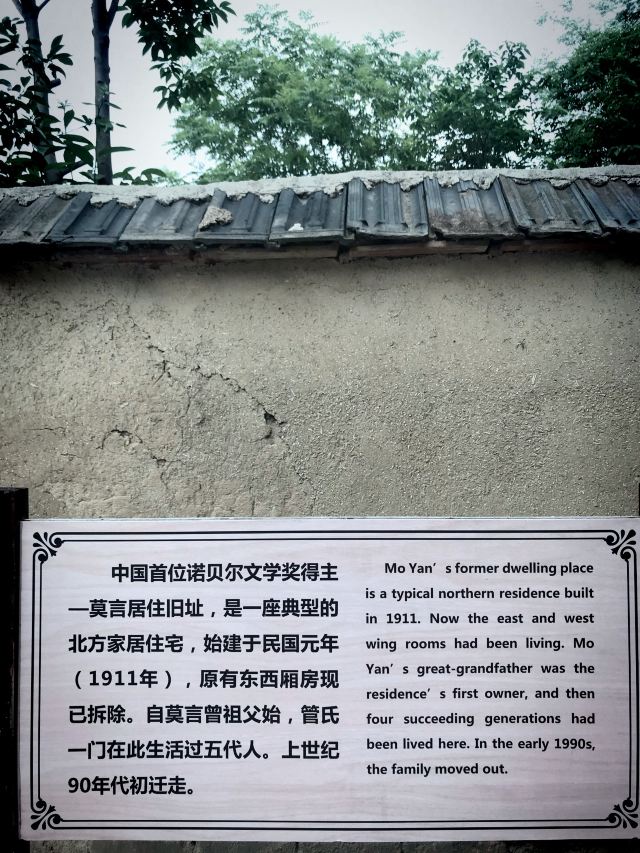 中国首位诺贝尔文学奖得主
—莫言居住旧址，是一座典型的
北方家居住宅，始建于民国元年
（1911年），原有东西厢房现
已拆除。自莫言曾祖父始，管氏
一门在此生活过五代人。上世纪
90年代初迁走。
Mo Yan’s former dwelling place
is a typical northern residence built
in 1911. Now the east and west
wing rooms had been living. Mo
Yan’s great-grandfather was the
residence’s first owner, and then
four succeeding generations had
been lived here. In the early 1990s,
the family moved out.